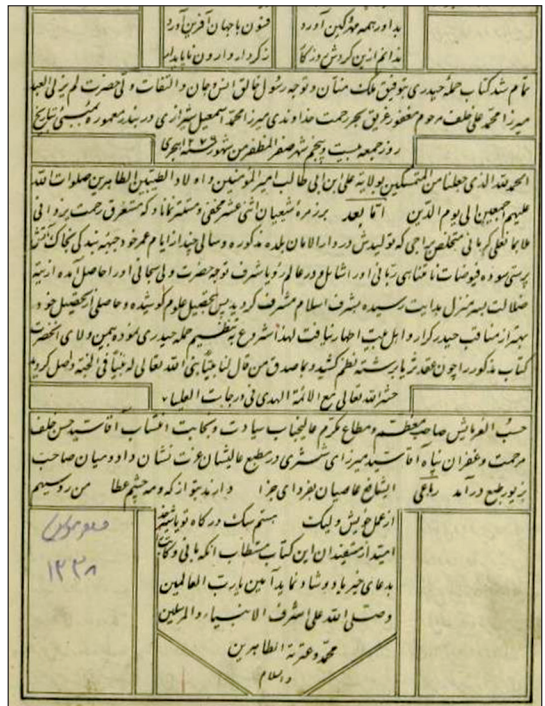 بداور همه مهر کین آورد
فنون با جهان آفرین آورد
ندانم ازین کردش روزگار
ز کردار وارون ناپایدار
تمام شد کتاب حملهٔ حیدری بتوفیق ملک منان و توجه رسول خالق انس و جان و التفات ولی حضرت لم یزلی العبد
میرزا محمد علی خلف مرحوم مغفور غریق بحر رحمت خداوندی میرزا محمد اسمعیل شیرازی در بندر معموره بمبئی بتاریخ
روز جمعه بیست و پنجم شهر صفر المظفر من شهور سنه ۱۲۷۶ هجری
الحمد لله الذی جعلنا من المتمسکین بولایة علی ابن ابی طالب امیر المؤمنین و اولاد الطیبین الطاهرین صلوات الله
علیهم اجمعین الی یوم الدین اما بعد بر زمره شعیان اثنی عشر مخفی و مستتر نماناد که مستغرق رحمت یزدانی
ملا بمانعلی کرمانی متخلص براجی که تولیدش در دار الامان بلده مذکوره و سالی چند از ایام عمر خود جبهه بندگی بخاک آتش
پرستی سوده فیوضات نامتناهی ربانی او را شامل و در عالم رؤیا شرف توجه حضرت ولی سبحانی او را حاصل آمده از تیه
ضلالت بسر منزل هدایت رسیده بشرف اسلام مشرف کردید پس بتحصیل علوم کوشیده و حاصلی از تحصیل خود
بهتر از مناقب حیدر کرار و اهل بیت اطهار نیافت لهذا شروع بتنظیم حمله حیدری نموده بیمن ولای آنحضرت
کتاب مذکور را چون عقد ثریا برشته نظم کشید و بمصداق من قال لنا بیتا بنی الله تعالی له بیتا فی الجنة وصل کردید
حشره الله تعالی مع الائمة الهدی فی درجات العلیا
حسب الفرمایش صاحب معظم و مطاع مکرم عالیجناب سیادت و نجابت انتساب آقا سید حسن خلف
مرحمت و غفران پناه آقا سید میرزای ششتری در مطبع عالیشان عزت نشان دادو میان صاحب
بزیور طبع در آمد رباعی ایشافع عاصیان بفردای جزا دارند بتو از که و مه چشم عطا من روسیهم
از عمل خویش ولیک هستم سک درکاه تو یا شیر خدا
امید از مستفیدان این کتاب مستطاب آنکه بانی و کاتب را
بدعای خیر یاد و شاد نماید آمین یا رب العالمین
و صلی الله علی اشرف الانبیاء و المرسلین
محمد و عترته الطاهرین
والسلام
۱۲۳۸